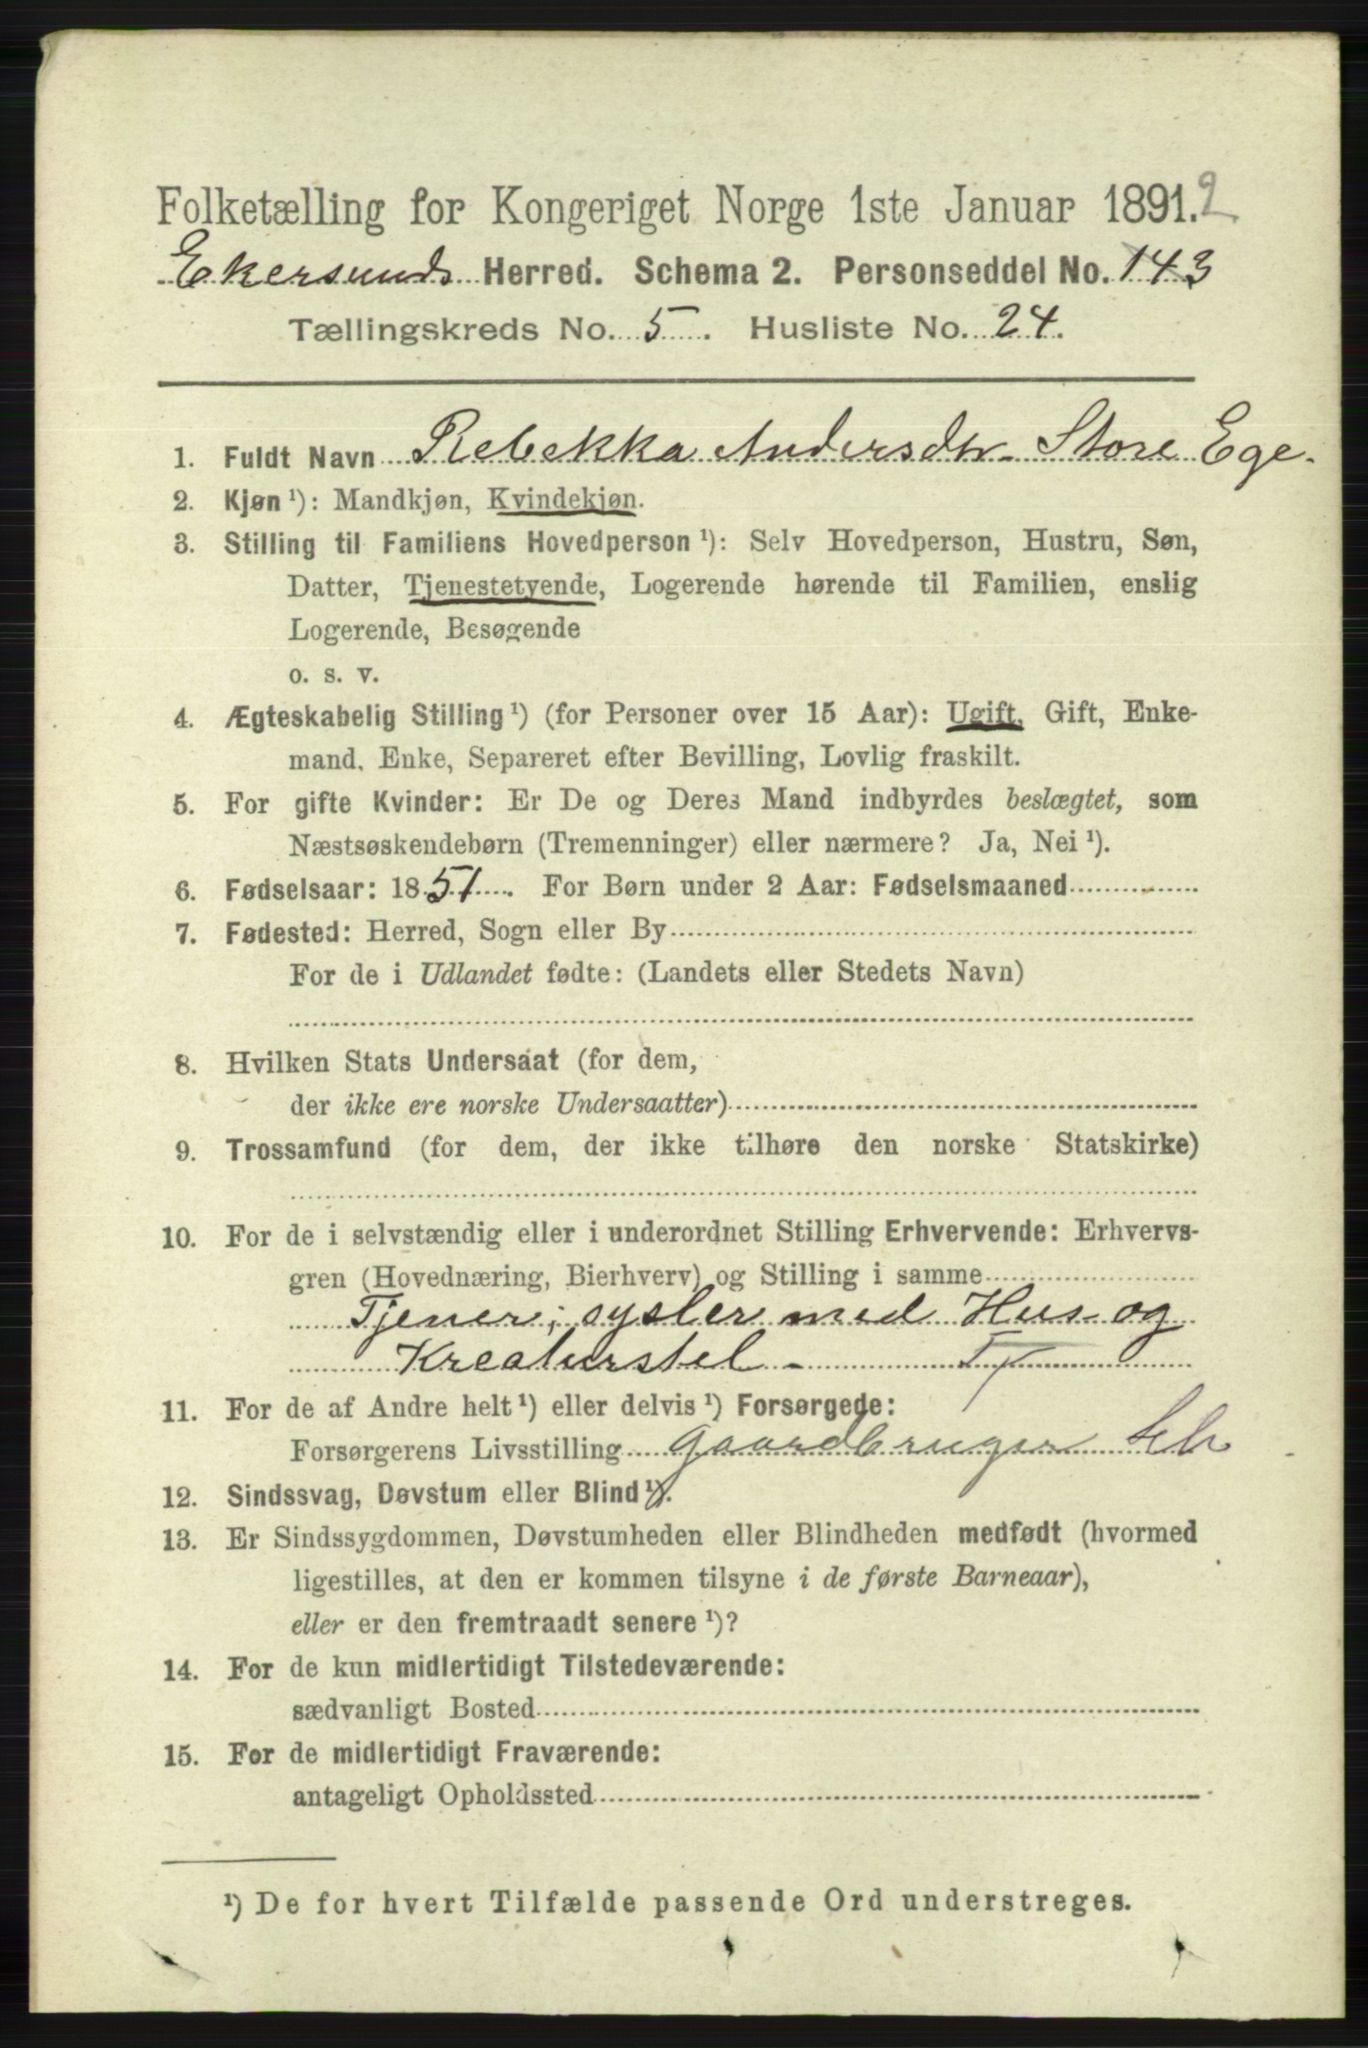 Folketælling for Kongeriget Norge 1ste Januar 1891. 2
Ekersunds Herred. Schema 2. Personseddel No. 143
Tællingskreds No. 5. Husliste No. 24.
1. Fuldt Navn Rebekka Andersdtr. Store Ege.
2. Kjøn ¹): Mandkjøn, Kvindekjøn.
3. Stilling til Familiens Hovedperson ¹): Selv Hovedperson, Hustru, Søn,
Datter, Tjenestetyende, Logerende hørende til Familien, enslig
Logerende, Besøgende
o. s. v.
4. Ægteskabelig Stilling ¹) (for Personer over 15 Aar): Ugift, Gift, Enke-
mand, Enke, Separeret efter Bevilling, Lovlig fraskilt.
5. For gifte Kvinder: Er De og Deres Mand indbyrdes beslægtet, som
Næstsøskendebørn (Tremenninger) eller nærmere? Ja, Nei ¹).
6. Fødselsaar: 1851. For Børn under 2 Aar: Fødselsmaaned
7. Fødested: Herred, Sogn eller By
For de i Udlandet fødte: (Landets eller Stedets Navn)
8. Hvilken Stats Undersaat (for dem,
der ikke ere norske Undersaatter)
9. Trossamfund (for dem, der ikke tilhøre den norske Statskirke)
10. For de i selvstændig eller i underordnet Stilling Erhvervende: Erhvervs-
gren (Hovednæring, Bierhverv) og Stilling i samme
Tjener, sysler med Hus og
Kreaturstel - T
11. For de af Andre helt ¹) eller delvis ¹) Forsørgede:
Forsørgerens Livsstilling Gaardbruger Selv
12. Sindssvag, Døvstum eller Blind ¹).
13. Er Sindssygdommen, Døvstumheden eller Blindheden medfødt (hvormed
ligestilles, at den er kommen tilsyne i de første Barneaar),
eller er den fremtraadt senere ¹)?
14. For de kun midlertidigt Tilstedeværende:
sædvanligt Bosted
15. For de midlertidigt Fraværende:
antageligt Opholdssted
¹) De for hvert Tilfælde passende Ord understreges.